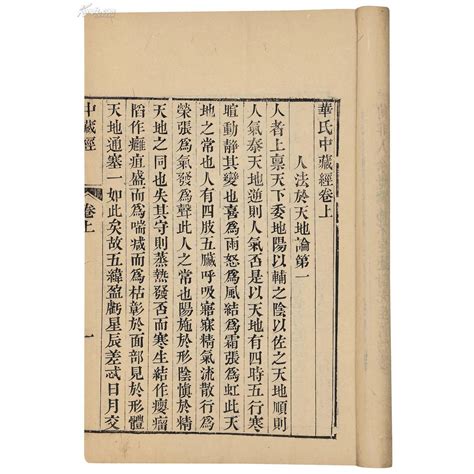 華氏中藏經卷上
人法於天地論第一
人者上禀天下委地陽以輔之陰以佐之天地順則
人氣泰天地逆則人氣否是以天地有四時五行寒
暄動靜其變也喜爲雨怒爲風結爲霜張爲虹此天
地之常也人有四肢五臟呼吸寤寐精氣流散行爲
榮張爲氣發爲聲此人之常也陽施於形陰慎於精
天地之同也失其守則蒸熱發否而寒生結作癭瘤
慆作癰疽盛而爲喘減而爲枯彰於面部見於形體
天地通塞一如此矣故五緯盈虧星辰差忒日月交
中藏經
卷上
一